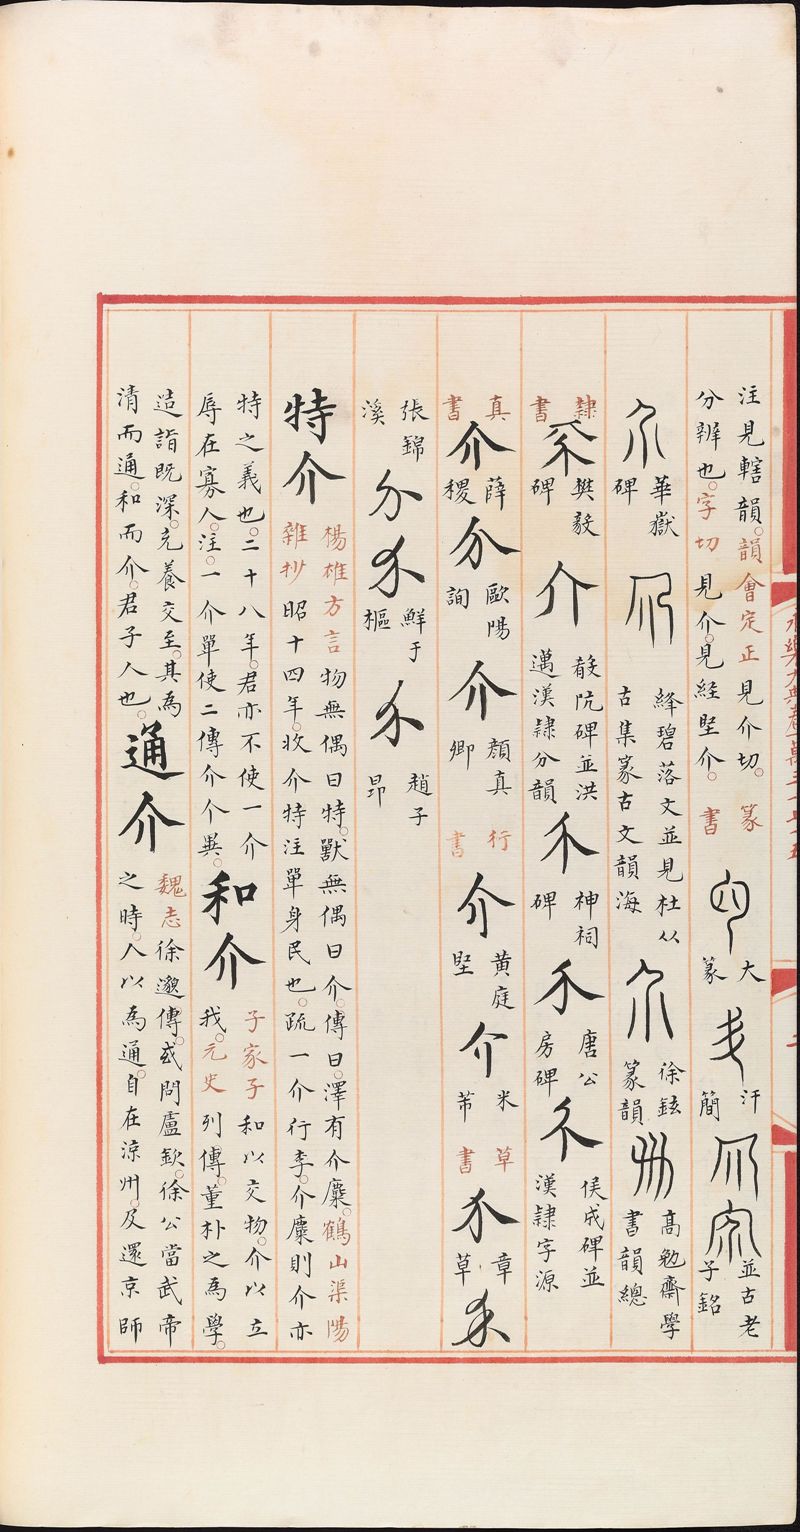 注見轄韻。韻會定正見介切。
分辨也。字切見介。見經堅介。
篆書
介 大篆
介 汗簡
介 介 並古老子銘
介 華嶽碑
介 絳碧落文並見杜从古集篆古文韻海
介 徐鉉篆韻
介 高勉齋學書韻總
隷書
介 樊毅碑
介 殽阬碑並洪邁漢隷分韻
介 神祠碑
介 唐公房碑
介 侯成碑並漢隷字源
真書
介 薛稷
介 歐陽詢
介 顏真卿
行書
介 黃庭堅
介 米芾
草書
介 章草
介 張錦溪
介 介 鮮于樞
介 趙子昂
特介
楊雄方言物無偶曰特。獸無偶曰介。傳曰。澤有介麋。鶴山渠陽
雜抄昭十四年。收介特注單身民也。疏一介行李。介麋則介亦
特之義也。二十八年。君亦不使一介
辱在寡人。注。一介單使二傳介介異。
和介
子家子和以交物。介以立
我。元史列傳。董朴之為學。
造詣既深。充養交至。其為
清而通。和而介。君子人也。
通介
魏志徐邈傳。或問盧欽。徐公當武帝
之時。人以為通。自在涼州。及還京師